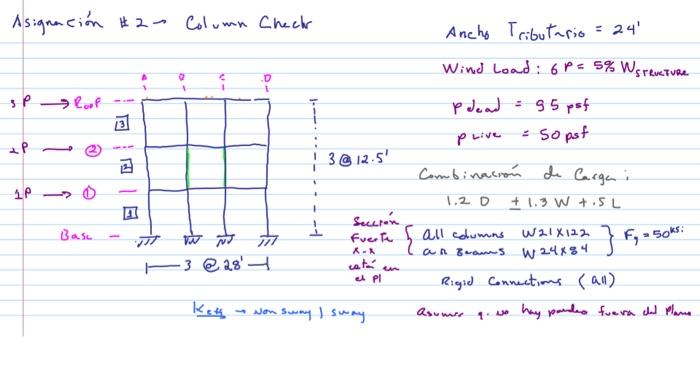 Asignación #2 → Column Check
Ancho Tributario = 24'
Wind Load: 6P = 5% WSTRUCTURE
Pdead = 95 psf
PLive = 50 psf
Combinación de Carga:
1.2 D ± 1.3 W + .5 L
A B C D
3P → Roof
3
2P → 2
2
1P → 1
1
Base
3 @ 12.5'
3 @ 28'
Sección
Fuerte
x-x
está en
el Pl
All columns W21X122
all Beams W24X84
Fy = 50ksi
Rigid Connections (All)
Keff → Non sway / sway
Asumir q. no hay pandeo fuera del Plano